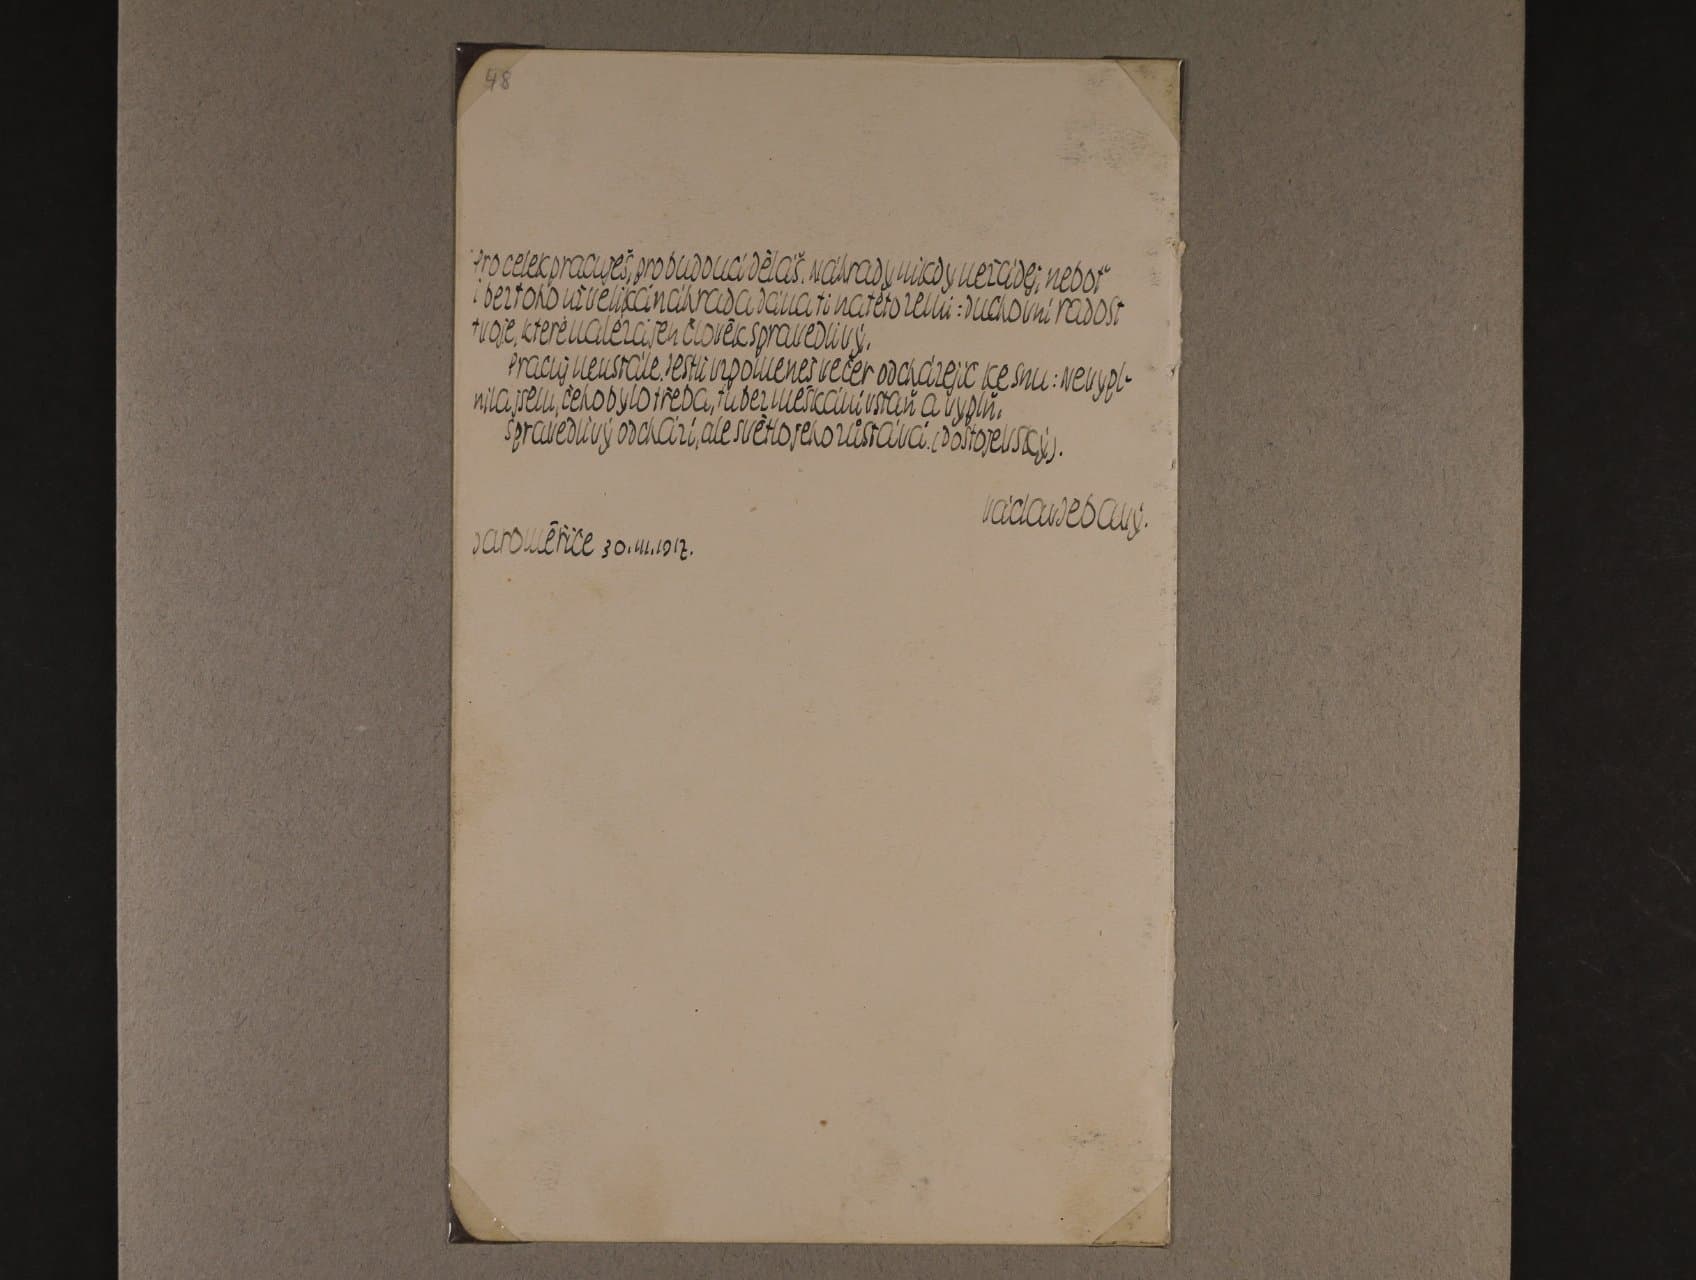 48
Pro celek pracuješ, pro budoucí děláš. Náhrady nikdy nežádej, neboť
i bez toho už veliká náhrada dána ti na této zemi: duchovní radost
tvoje, které nalézá jen člověk spravedlivý.
Pracuj neustále. Jestli vzpomeneš večer odcházejíc ke snu: Nevypl-
nila jsem, čeho bylo třeba, tu bez meškání vstaň a vyplň.
Spravedlivý odchází, ale světlo jeho zůstává. (Dostojevský).
Václav Jebavý.
Jaroměřice 30.III.1917.